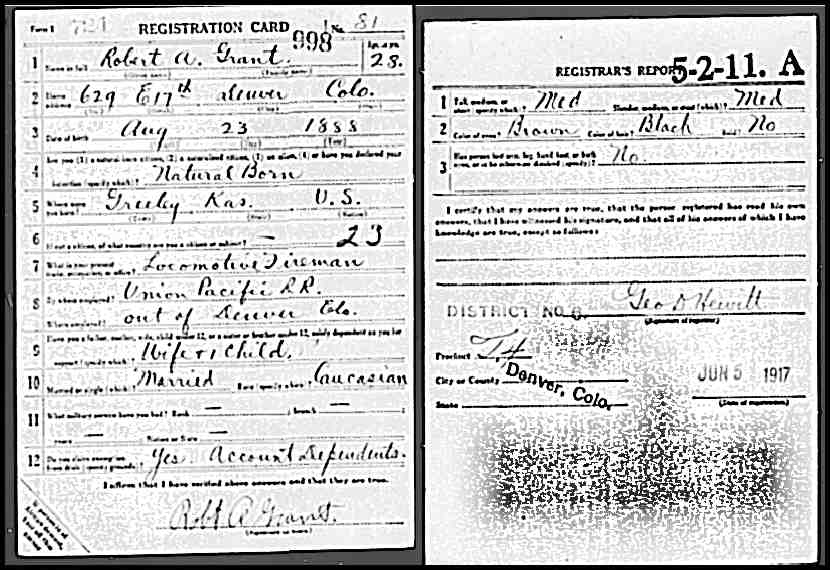 Form 1 REGISTRATION CARD No. 81
998
1 Name in full Robert A. Grant. Age, in yrs. 28.
(Given name) (Family name)
2 Home address 629 E 17th Denver Colo.
3 Date of birth Aug 23 1888
(Month) (Day) (Year)
4 Are you (1) a natural-born citizen, (2) a naturalized citizen, (3) an alien, (4) or have you declared your
intention (specify which)? Natural Born
5 Where were you born? Greeley Kas. U.S.
(Town) (State) (Nation)
6 If not a citizen, of what country are you a citizen or subject? — 23
7 What is your present trade, occupation, or office? Locomotive Fireman
8 By whom employed? Union Pacific R.R.
Where employed? out of Denver Colo.
9 Have you a father, mother, wife, child under 12, or a sister or brother under 12, solely dependent on you for
support (specify which)? Wife & 1 Child.
10 Married or single (which)? Married Race (specify which)? Caucasian
11 What military service have you had? Rank — ; branch — ;
years — Nation or State —
12 Do you claim exemption from draft (specify grounds)? Yes. Account Dependents.
I affirm that I have verified above answers and that they are true.
Robt A Grant.
(Signature or mark)
REGISTRAR'S REPORT 5-2-11. A
1 Tall, medium, or short (specify which)? Med Slender, medium, or stout (which)? Med
2 Color of eyes? Brown Color of hair? Black Bald? No
3 Has person lost arm, leg, hand, foot, or both eyes, or is he otherwise disabled (specify)? No.
I certify that my answers are true, that the person registered has read his own
answers, that I have witnessed his signature, and that all of his answers of which I have
knowledge are true, except as follows:
Geo D Hewitt
DISTRICT NO. 6.
(Signature of registrar)
Precinct
City or County Denver, Colo.
JUN 5 1917
State
(Date of registration)